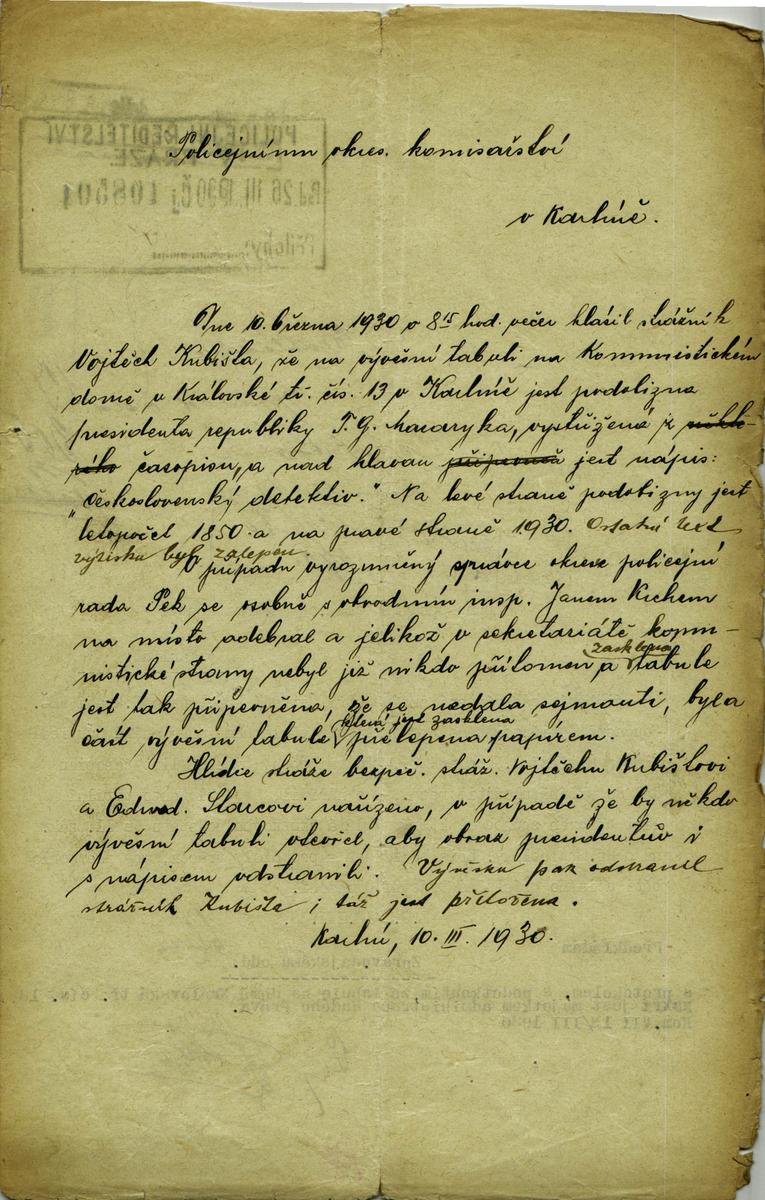 Policejnímu okres. komisařství
v Karlíně.
Dne 10. března 1930 o 8 15 hod. večer hlásil strážník
Vojtěch Kubišta, že na vývěsní tabuli na Kommistickém
domě v Královské tř. čís. 13 v Karlíně jest podobizna
presidenta republiky T. G. Masaryka, vystřižená z někte-
rého časopisu, a nad hlavou připevněn jest nápis:
"Československý detektiv." Na levé straně podobizny jest
letopočet 1850 a na pravé straně 1930. Ostatní text
výřisku byl zalepen.
O případu vyrozuměný správce okresu policejní
rada Pek se osobně s obvodním insp. Janem Kuchem
na místo odebral a jelikož v sekretariátě komu-
zasklena
nistické strany nebyl již nikdo přítomen a tabule
jest tak připevněna, že se nedala sejmouti, byla
která jest zasklena
část vývěsní tabule přelepena papírem.
Hlídce stráže bezpeč. stráž. Vojtěchu Kubištovi
a Eduard. Slancovi nařízeno, v případě že by někdo
vývěsní tabuli otevřel, aby obraz presidentův i
s nápisem odstranili. Výřisku pak odstranil
strážník Kubišta i táž jest přiložena.
Karlín, 10. III. 1930.
POLICEJNÍ ŘEDITELSTVÍ
26 III. 1930
Přílohy